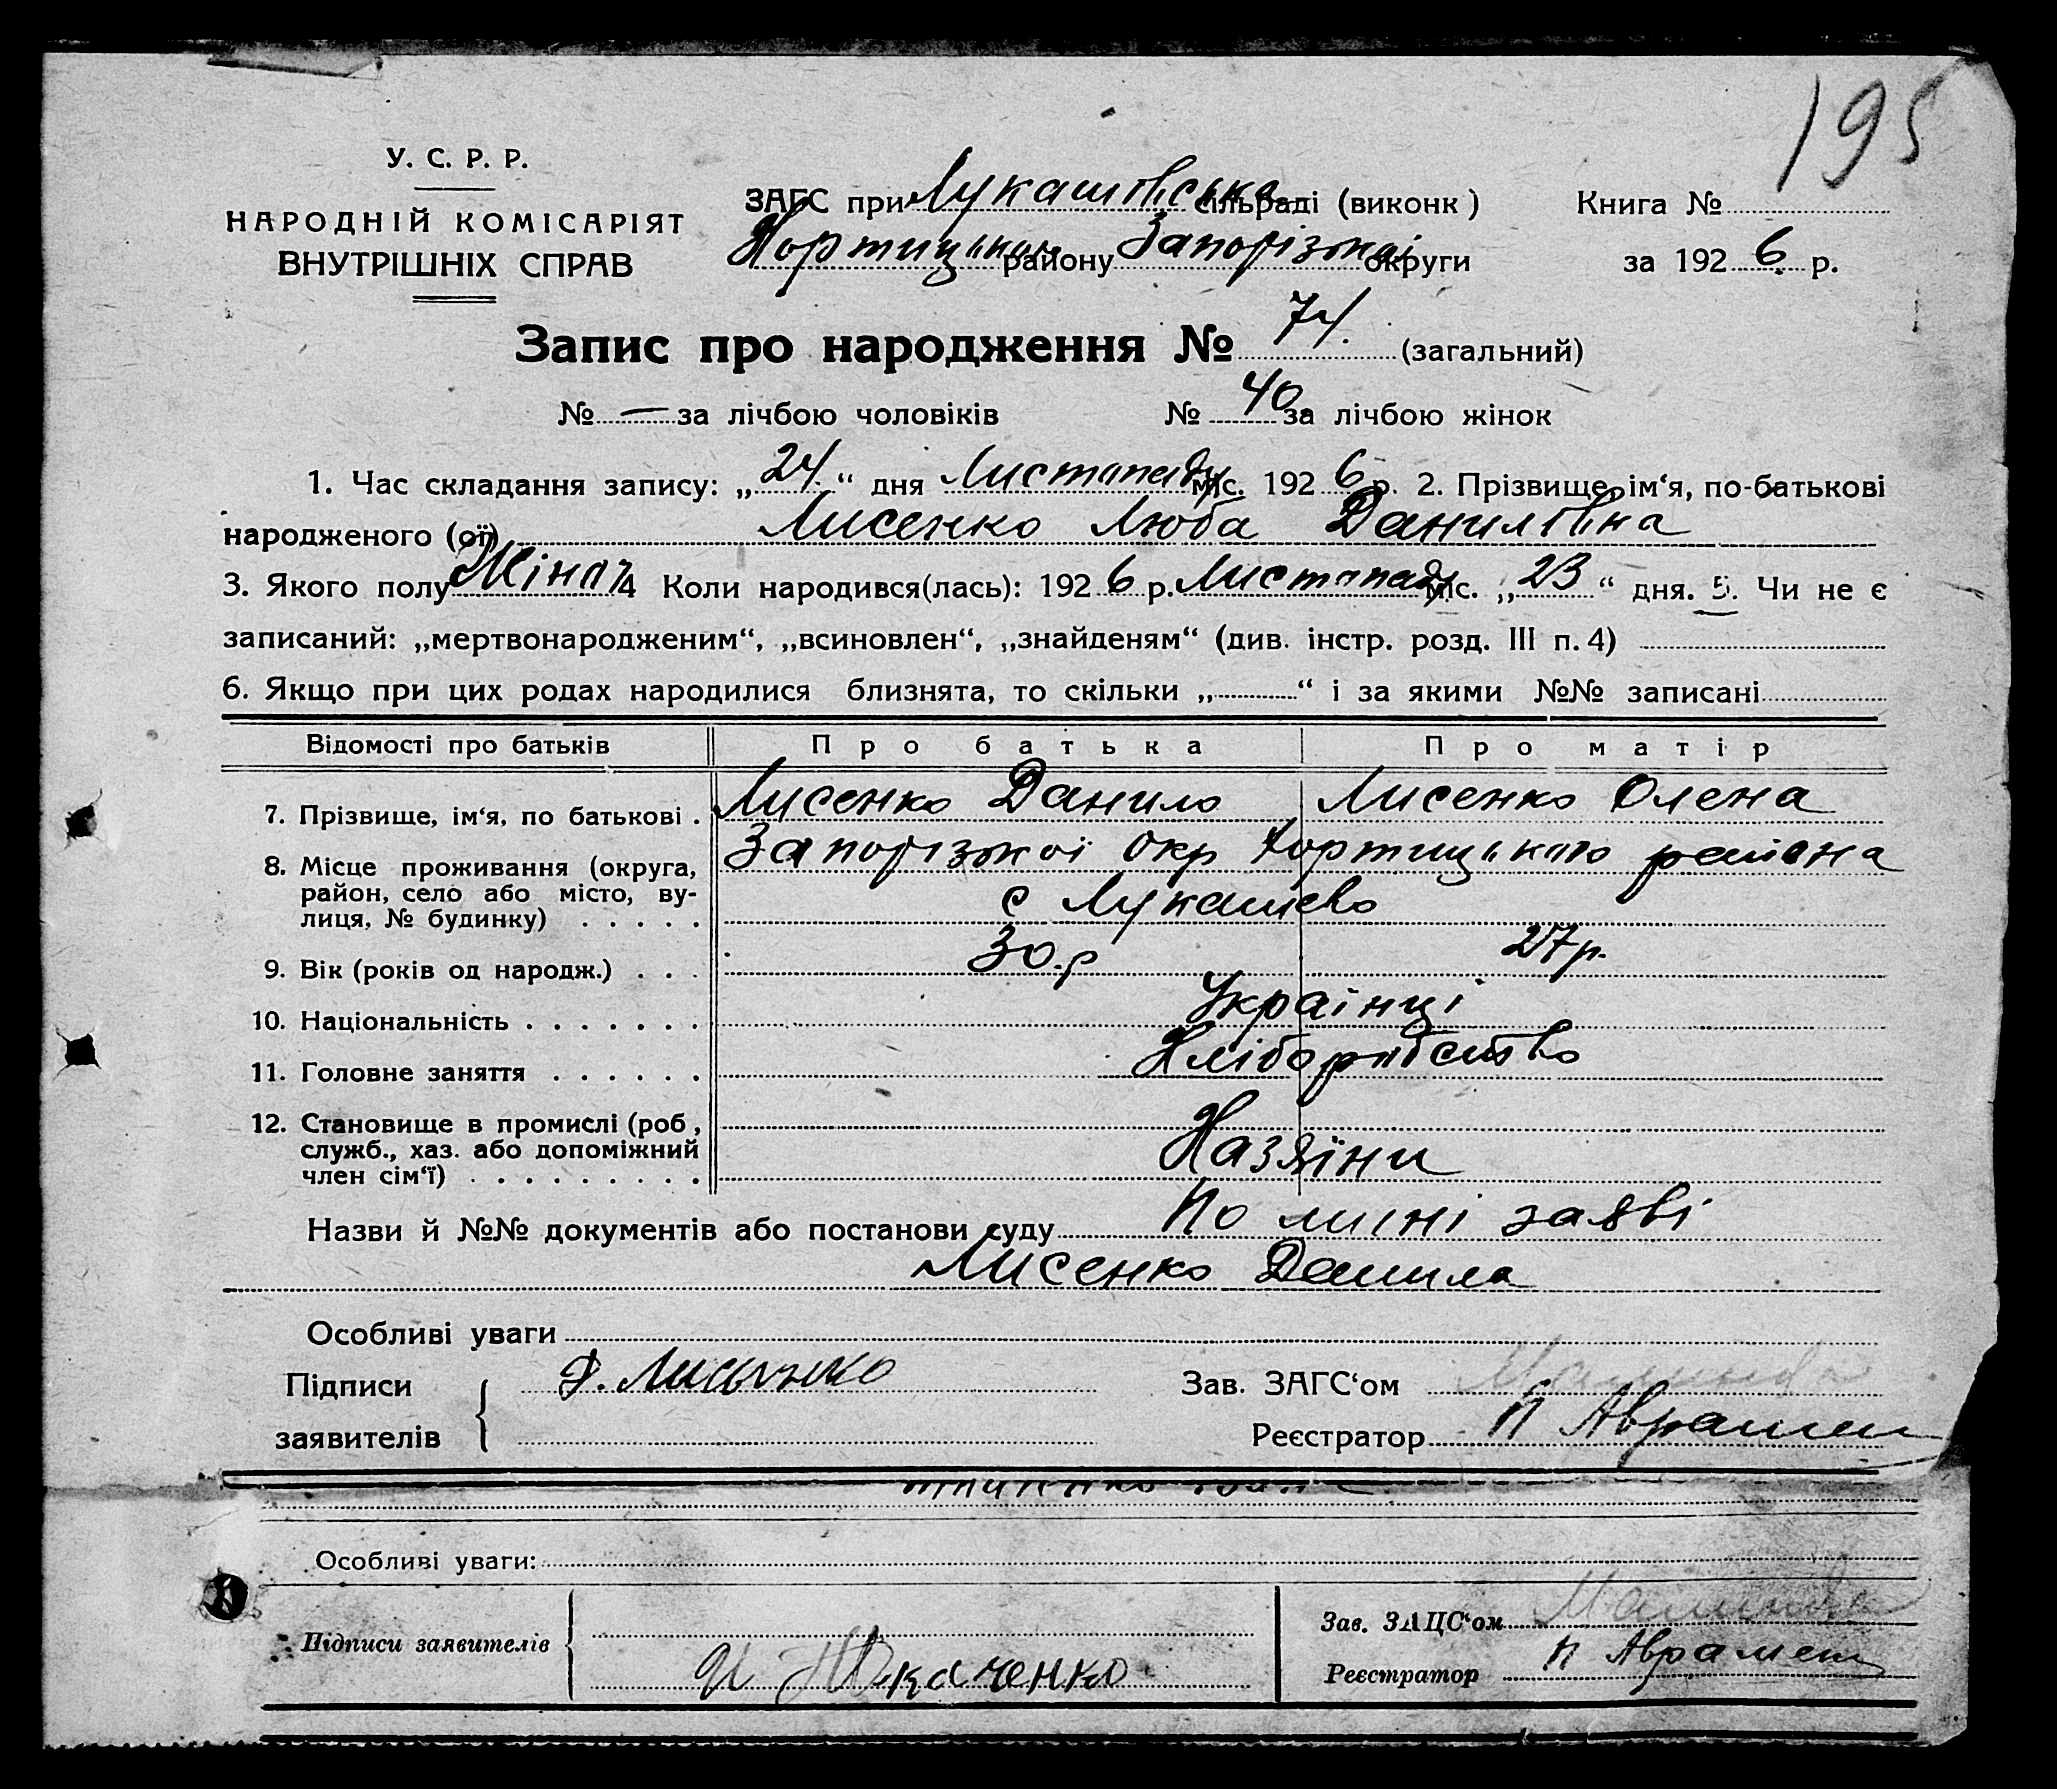 195
У. С. Р. Р.
НАРОДНІЙ КОМІСАРІЯТ
ВНУТРІШНІХ СПРАВ
ЗАГС при Лукашівська сільраді (виконк)
Хортицького району Запорізької округи
Книга №
за 1926 р.
Запис про народження № 74. (загальний)
№ — за лічбою чоловіків № 40 за лічбою жінок
1. Час складання запису: „24.“ дня Листопаду міс. 1926 р. 2. Прізвище, ім‘я, по-батькові
народженого (ої) Лисенко Люба Данилівна
3. Якого полу Жіноч 4 Коли народився(лась): 1926 р. Листопаду міс. „23“ дня. 5. Чи не є
записаний: „мертвонародженим“, „всиновлен“, „знайденям“ (див. інстр. розд. III п. 4)
6. Якщо при цих родах народилися близнята, то скільки „ “ і за якими №№ записані
Відомості про батьків Про батька Про матір
7. Прізвище, ім‘я, по батькові . Лисенко Данило Лисенко Олена
8. Місце проживання (округа, Запорізької Окр Хортицького района
район, село або місто, ву-
лиця, № будинку) . . . . . с Лукашево
9. Вік (років од народж.) . . . 30.р 27р.
10. Національність . . . . . . . Українці
11. Головне заняття . . . . . . Хліборобство
12. Становище в промислі (роб,
служб., хаз. або допоміжний Хазяїни
член сім‘ї) . . . . . . . . .
Назви й №№ документів або постанови суду По заяві
Лисенко Данила
Особливі уваги
Підписи
заявителів
Д. Лисенко
Зав. ЗАГС‘ом
Реєстратор П Аврамен
Особливі уваги:
Підписи заявителів
И Ткаченко
Зав. ЗАЦС‘ом
Реєстратор П Аврамен